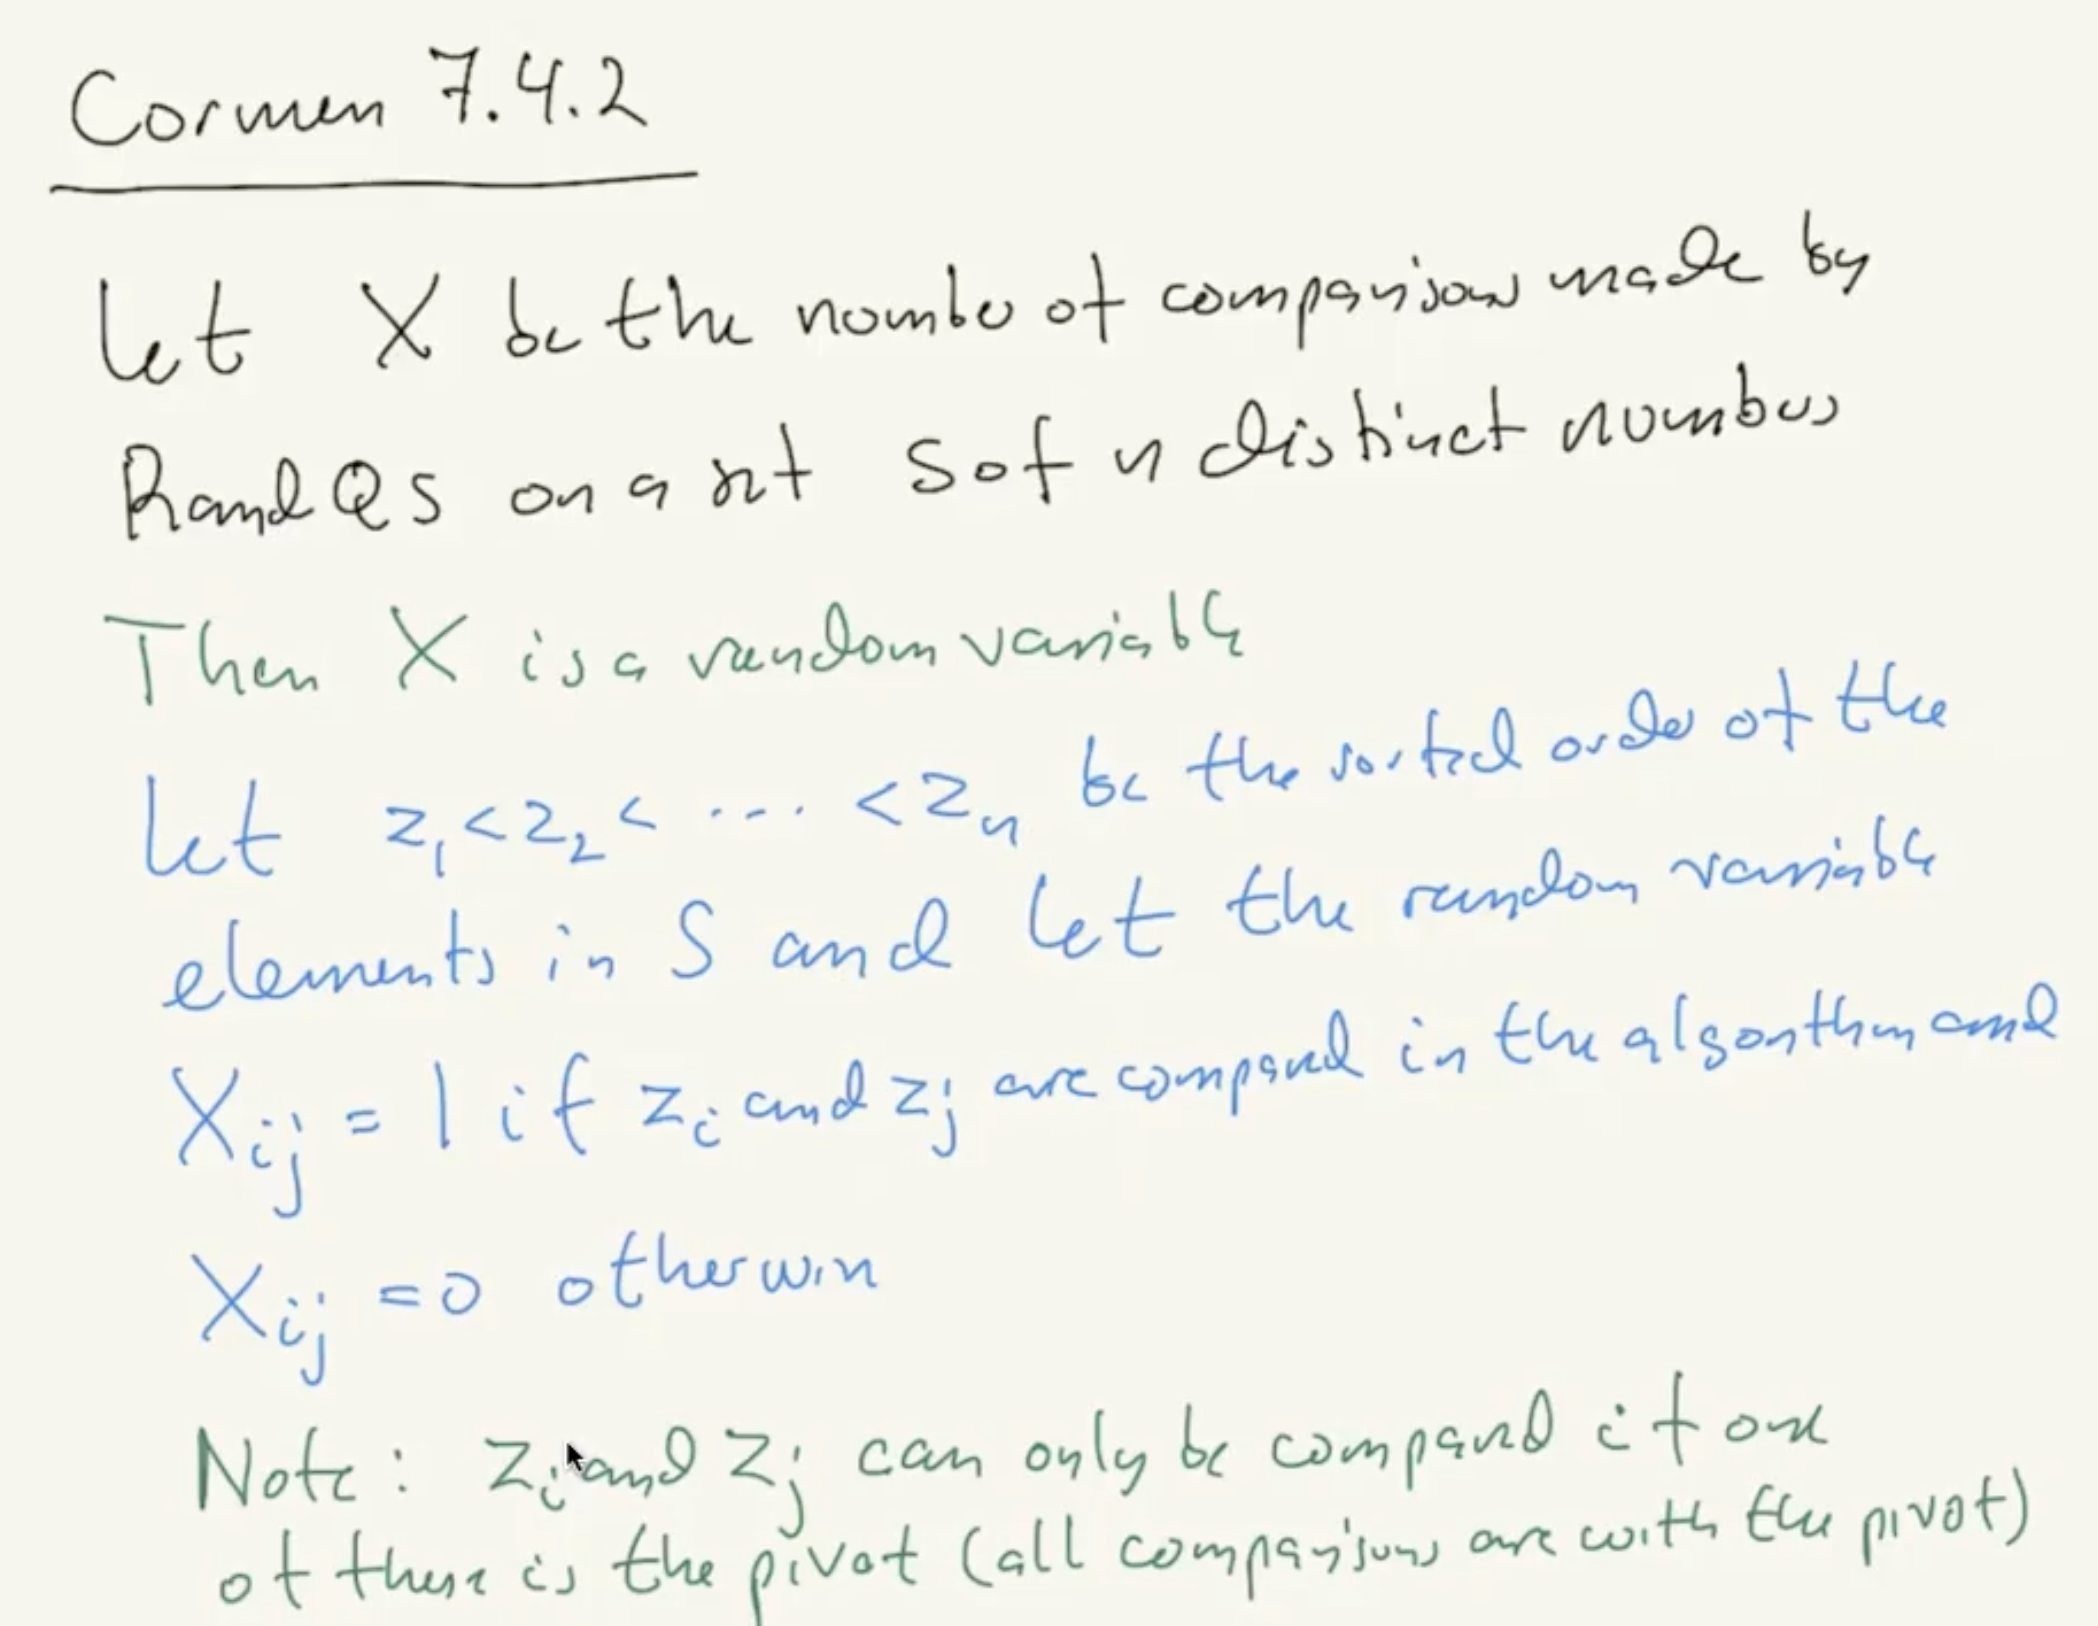 Cormen 7.4.2
Let X be the number of comparisons made by
RandQS on a set S of n distinct numbers
Then X is a random variable
Let z₁ < z₂ < ... < zₙ be the sorted order of the
elements in S and let the random variable
Xᵢⱼ = 1 if zᵢ and zⱼ are compared in the algorithm and
Xᵢⱼ = 0 otherwise
Note: zᵢ and zⱼ can only be compared if one
of these is the pivot (all comparisons are with the pivot)